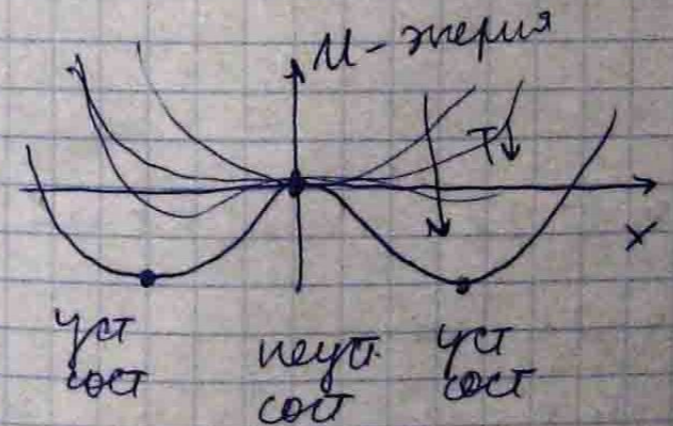 U - энергия
T↓
X
уст
сост
неуст.
сост
уст
сост